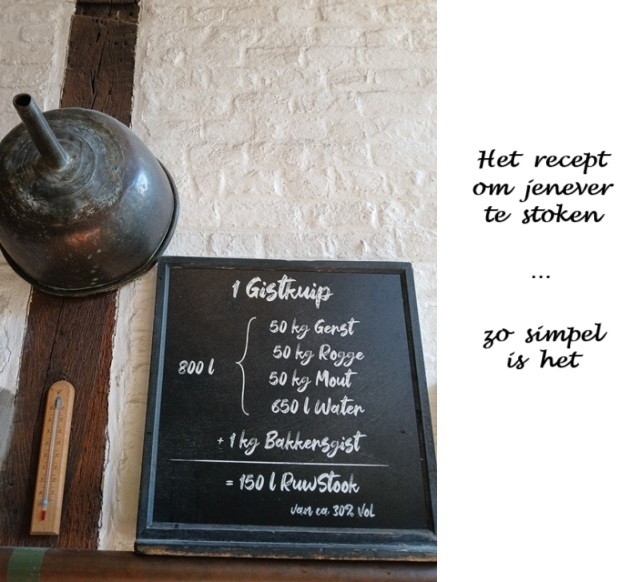 1 Gistkuip
50 kg Gerst
50 kg Rogge
800 l
50 kg Mout
650 l Water
+ 1 kg Bakkersgist
= 150 l RuwStook
van ca 30% Vol
Het recept
om jenever
te stoken
...
zo simpel
is het